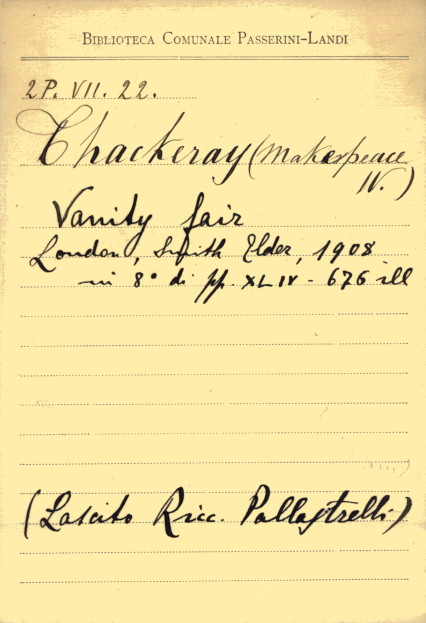 BIBLIOTECA COMUNALE PASSERINI-LANDI
2P. VII. 22.
Thackeray (Makespeace
W.)
Vanity fair
London, Smith Elder, 1908
in 8° di pp. XLIV - 676 ill
(Lascito Ricc. Pallastrelli)